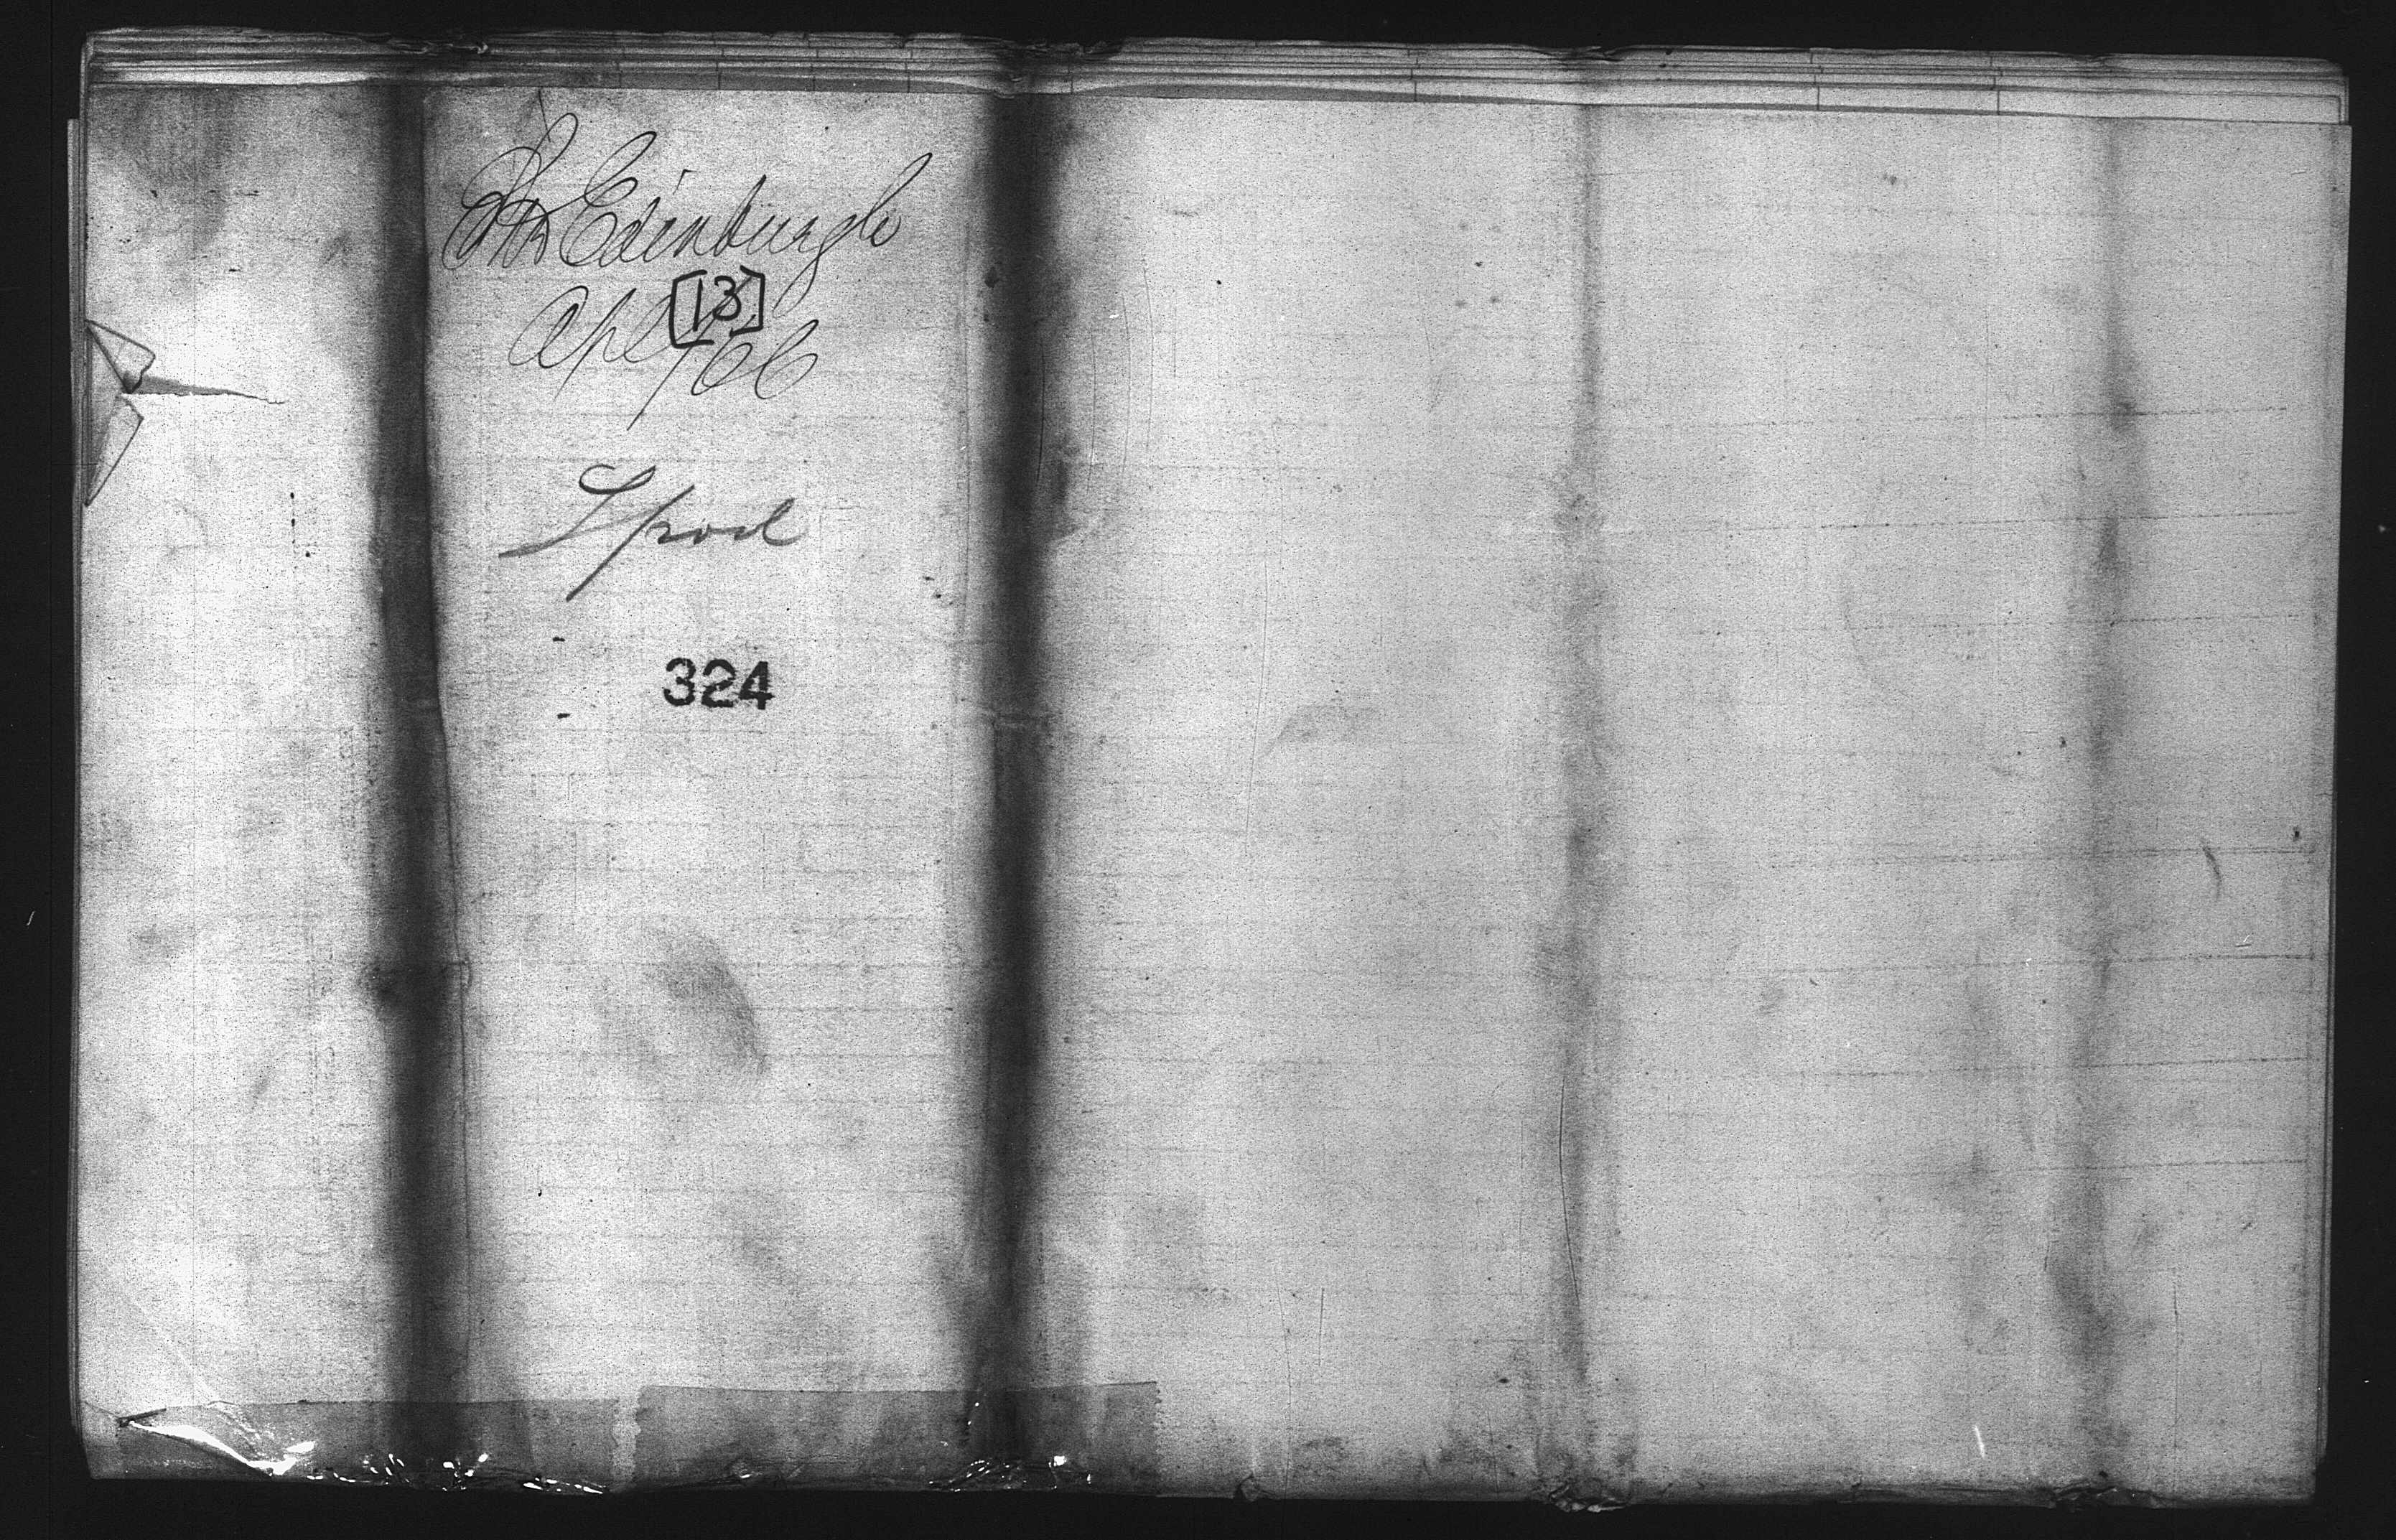 SS Edinburgh
[13]
Apl /06
Lpool
324